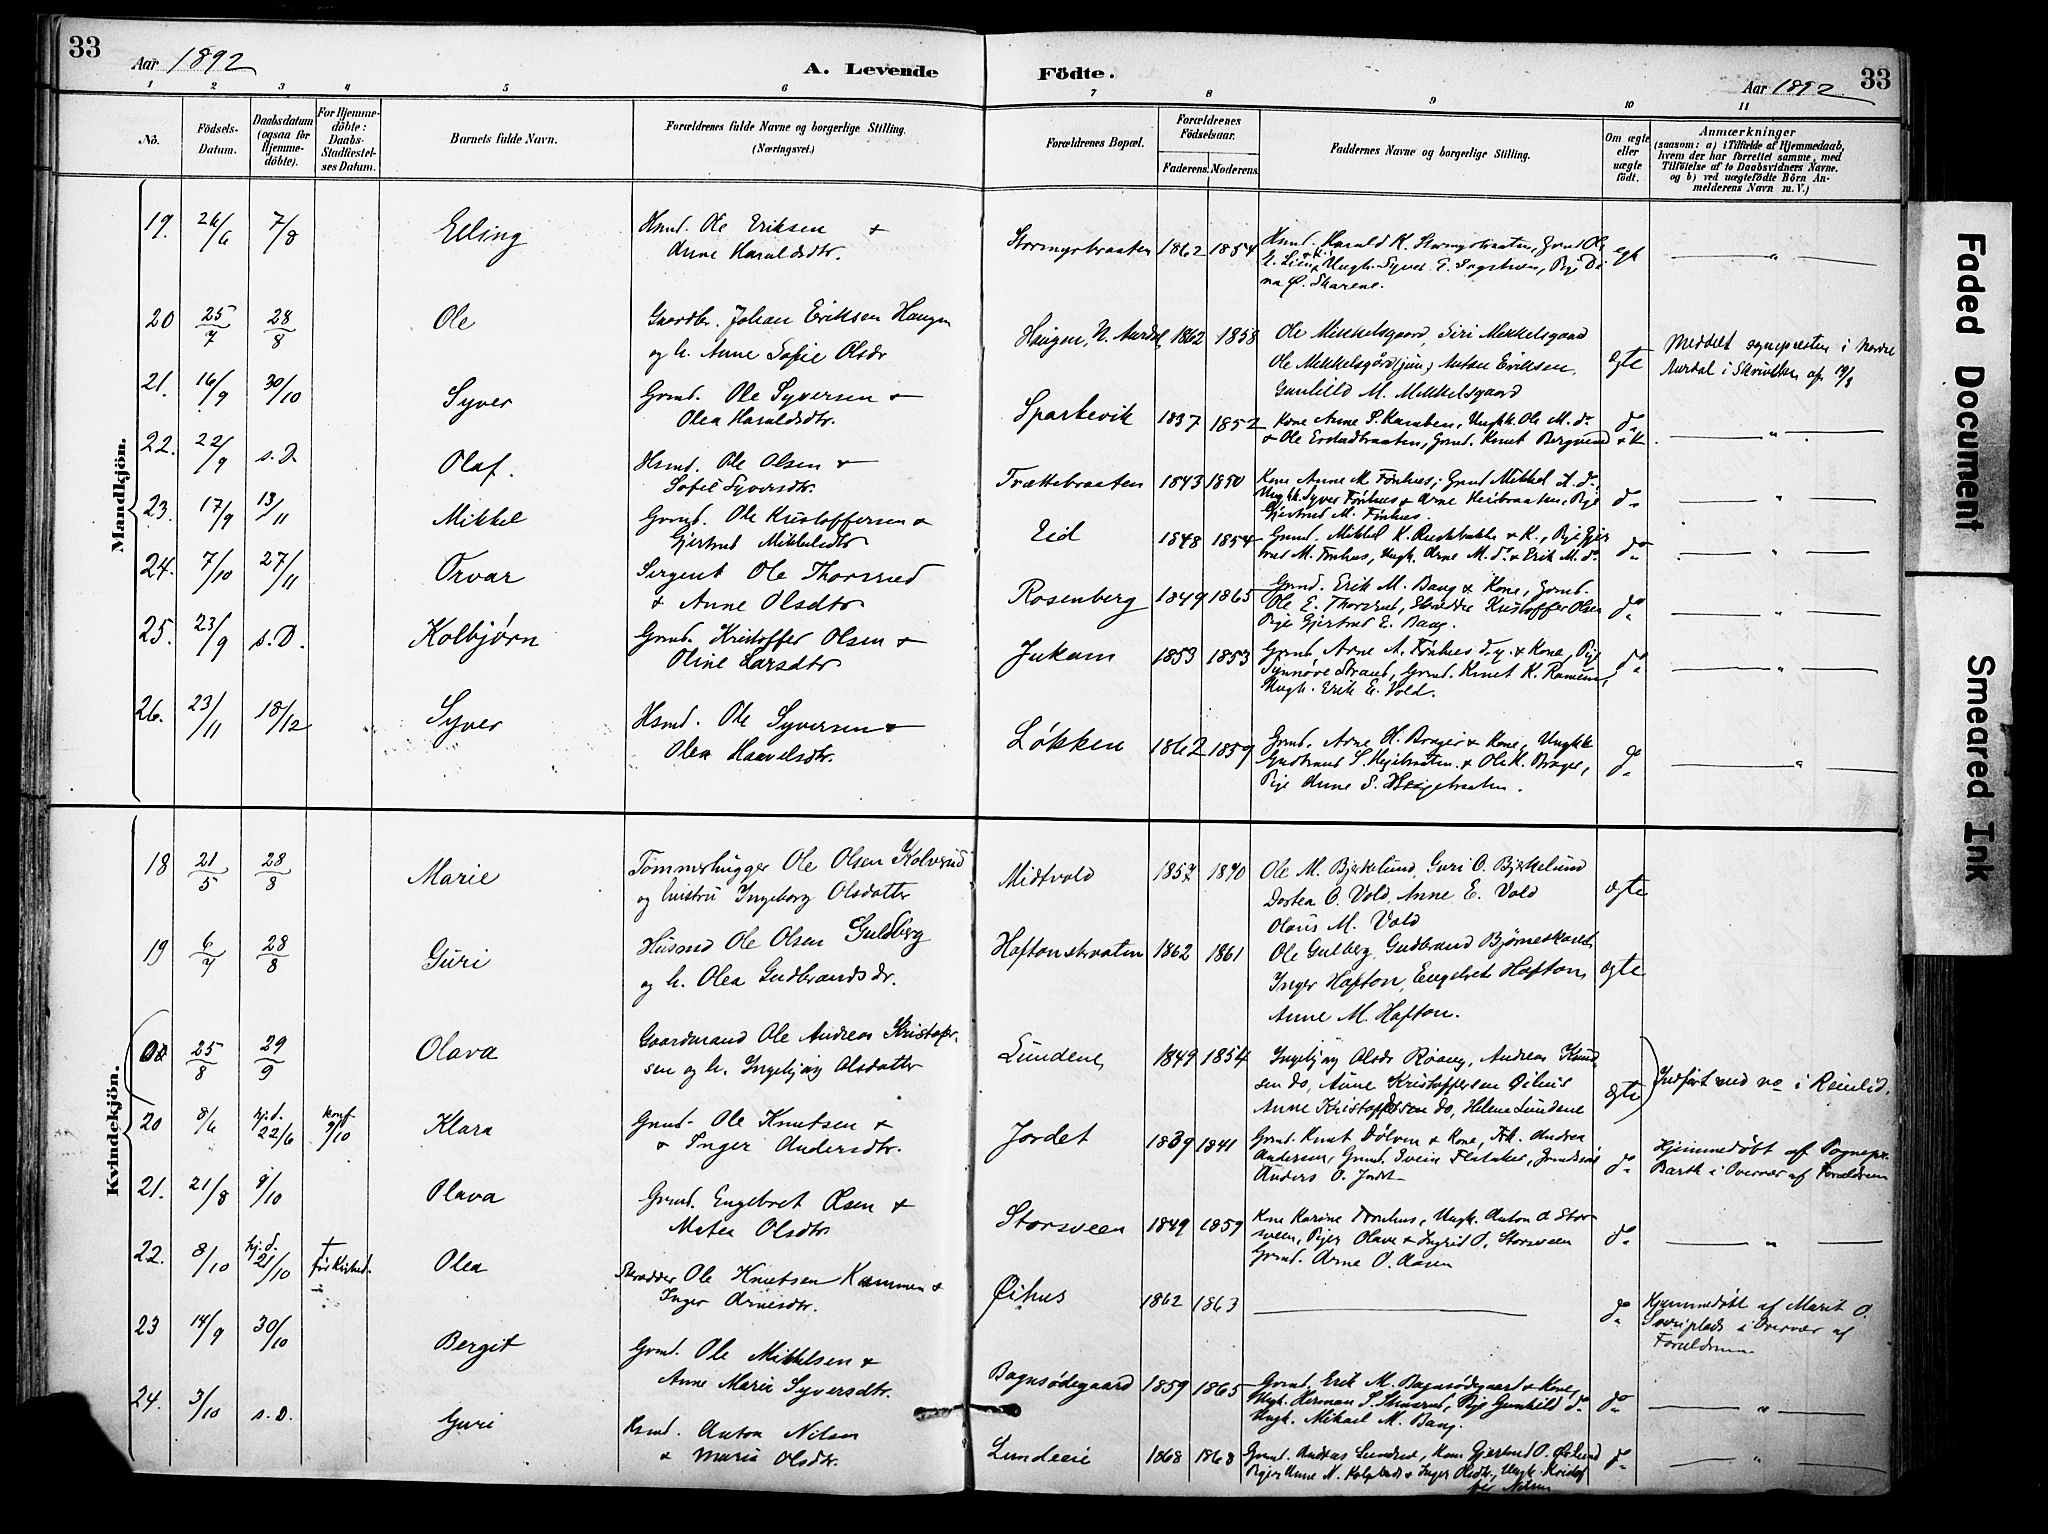 33
Aar 1892
A. Levende
Födte.
Aar 1892
33
1 2 3 4 5 6 7 8 9 10 11
No.
Födsels-Datum.
Daabsdatum (ogsaa for Hjemme-döbte).
For Hjemme-döbte: Daabs-Stadfæstel-ses Datum.
Barnets fulde Navn.
Forældrenes fulde Navne og borgerlige Stilling.
(Næringsvei.)
Forældrenes Bopæl.
Forældrenes Födselsaar.
Faderens. Moderens.
Faddernes Navne og borgerlige Stilling.
Om ægte eller uægte födt.
Anmærkninger
(saasom: a) i Tilfælde af Hjemmedaab,
hvem der har forrettet samme, med
Tilföielse af to Daabsvidners Navne.
og b) ved uægtefödte Börn An-
melderens Navn m. V.)
Mandkjön.
19. 26/6 7/8 Elling Hsmd. Ole Eriksen + Anne Haraldsdtr. Stormyrbraaten 1862 1854 Hsmd. Harald K. Stormyrbraaten, Grmd Ole E. Lien + K. Ungk. Syver Pige Di na Ø. Skarene. egte "
20 25/7 28/8 Ole Gaardbr. Johan Eriksen Haugen og h. Anne Sofie Olsdr Haugen, N. Aurdal 1862 1858 Ole Mikkelsgaard, Siri Mikkelsgaard Ole Mikkelsgård (jun) Anton Eriksen, Gunhild M. Mikkelsgaard egte Meddelt sognepresten i Nordre Aurdal i Skrivelse af 19/9
21. 16/9 30/10 Syver Grmd. Ole Syversen + Olea Haraldsdtr. Sparkevik 1837 1852 Kone Anne S. Ungk. Ole M. do + Ole Grmd. Knut Bergsund + K. do "
22. 22/9 s. D. Olaf. Hsmd. Ole Olsen + Sofie Syversdtr. Trættebraaten 1843 1850 Kone Anne M. Fønhus, Grmd Mikkel L. do, Ungk. Syver Fønhus + Arne Heibraaten, Pige Gjertrud M. Fønhus do "
23. 17/9 13/11 Mikkel Grmd. Ole Kristoffersen + Gjertrud Mikkelsdtr Eid 1848 1854 Grmd. Mikkel K. + K., Pige Gjer trud M. Fønhus, Ungk. Arne M. do + Erik M. do do "
24. 7/10 27/11 Orvar Sergent Ole Thorsrud + Anne Olsdtr Rosenberg 1849 1865 Grmd. Erik M. Bang + Kone, Grmd. Ole E. Thorsrud, Skrædder Kristoffer Olsen Pige Gjertrud E. Bang. do "
25. 23/9 s. D. Kolbjørn Grmd. Kristoffer Olsen + Oline Larsdtr Jukam 1853 1853 Grmd. Arne A. Fønhus d. y. + Kone, Pige Synnøve Strand, Grmd. Knut K. Ungk. Erik E. Vold. do "
26. 23/11 18/12 Syver Hsmd. Ole Syversen + Olea Haavelsdtr. Løkken 1862 1859 Grmd. Arne H. Brager + Kone, Ungk. Gudbrand S. + Ole K. Brager, Pige Anne S. do "
Kvindekjön.
18 21/5 28/8 Marie Tømmerhugger Ole Olsen Kolsrud og hustru Ingeborg Olsdatter Midtvold 1857 1870 Ole M. Bjerkelund, Guri O. Bjerkelund Dortea O. Vold, Anne E. Vold Olaus M. Vold egte
19 6/7 28/8 Guri Husmd Ole Olsen Guldberg og h. Olea Gudbrandsdr. Haftonsbraaten 1862 1861 Ole Gulberg, Gudbrand Inger Hafton, Engebret Hafton, Anne M. Hafton. egte
25/8 29/9 Olava Gaardmand Ole Andreas Kristoffer- sen og h. Ingebjørg Olsdatter Lundene 1849 1854 Ingebjørg Olsdr Røang, Andreas Knud sen do, Anne Kristoffersen Øihus Anne Kristoffersen do, Helene Lundene egte Indført med no i Reinlid.
20 8/6 hj. d. 22/6 konf 9/10 Klara Grmd. Ole Knutsen + + Inger Andersdtr. Jordet 1839 1841 Grmd. Knut Dølven + Kone, Frk. Andrea Andersen, Grmd. Svein Flitaker, Anders O. Jordet do Hjemmedøbt af Sognepr. Barth i Overvær af Forældrene
21. 21/8 9/10 Olava Grmd. Engebret Olsen + Mathea Olsdtr. Storsveen 1849 1859 Kone Karine Fønhus, Ungk. Anton O. Stor- sveen, Piger Olave + Ingrid O. Storsveen Grmd. Arne O. Aasen do "
22. 8/10 hj. d. 21/10 † før Kirked. Olea Skrædder Ole Knutsen + Inger Arnesdtr. Øihus 1862 1863 do Hjemmedøbt af Marit O. i Overvær af Forældrene
23 14/9 30/10 Bergit Grmd. Ole Mikkelsen + Anne Marie Syversdtr. Bagnsødegaard 1859 1865 Grmd. Erik M. Bagnsødegaard + Kone, Ungk. Herman S. Pige Gunhild do Ungk. Mikael M. Bang. do "
24. 3/10 s. D. Guri Hsmd. Anton Nilsen + Marie Olsdtr. Lundeeie 1868 1868 Grmd. Andreas Kone Gjertrud O. Piger Anne N. + Inger Olsdtr., Ungk. Kristof fer Nilsen do "
Faded Document
Smeared Ink